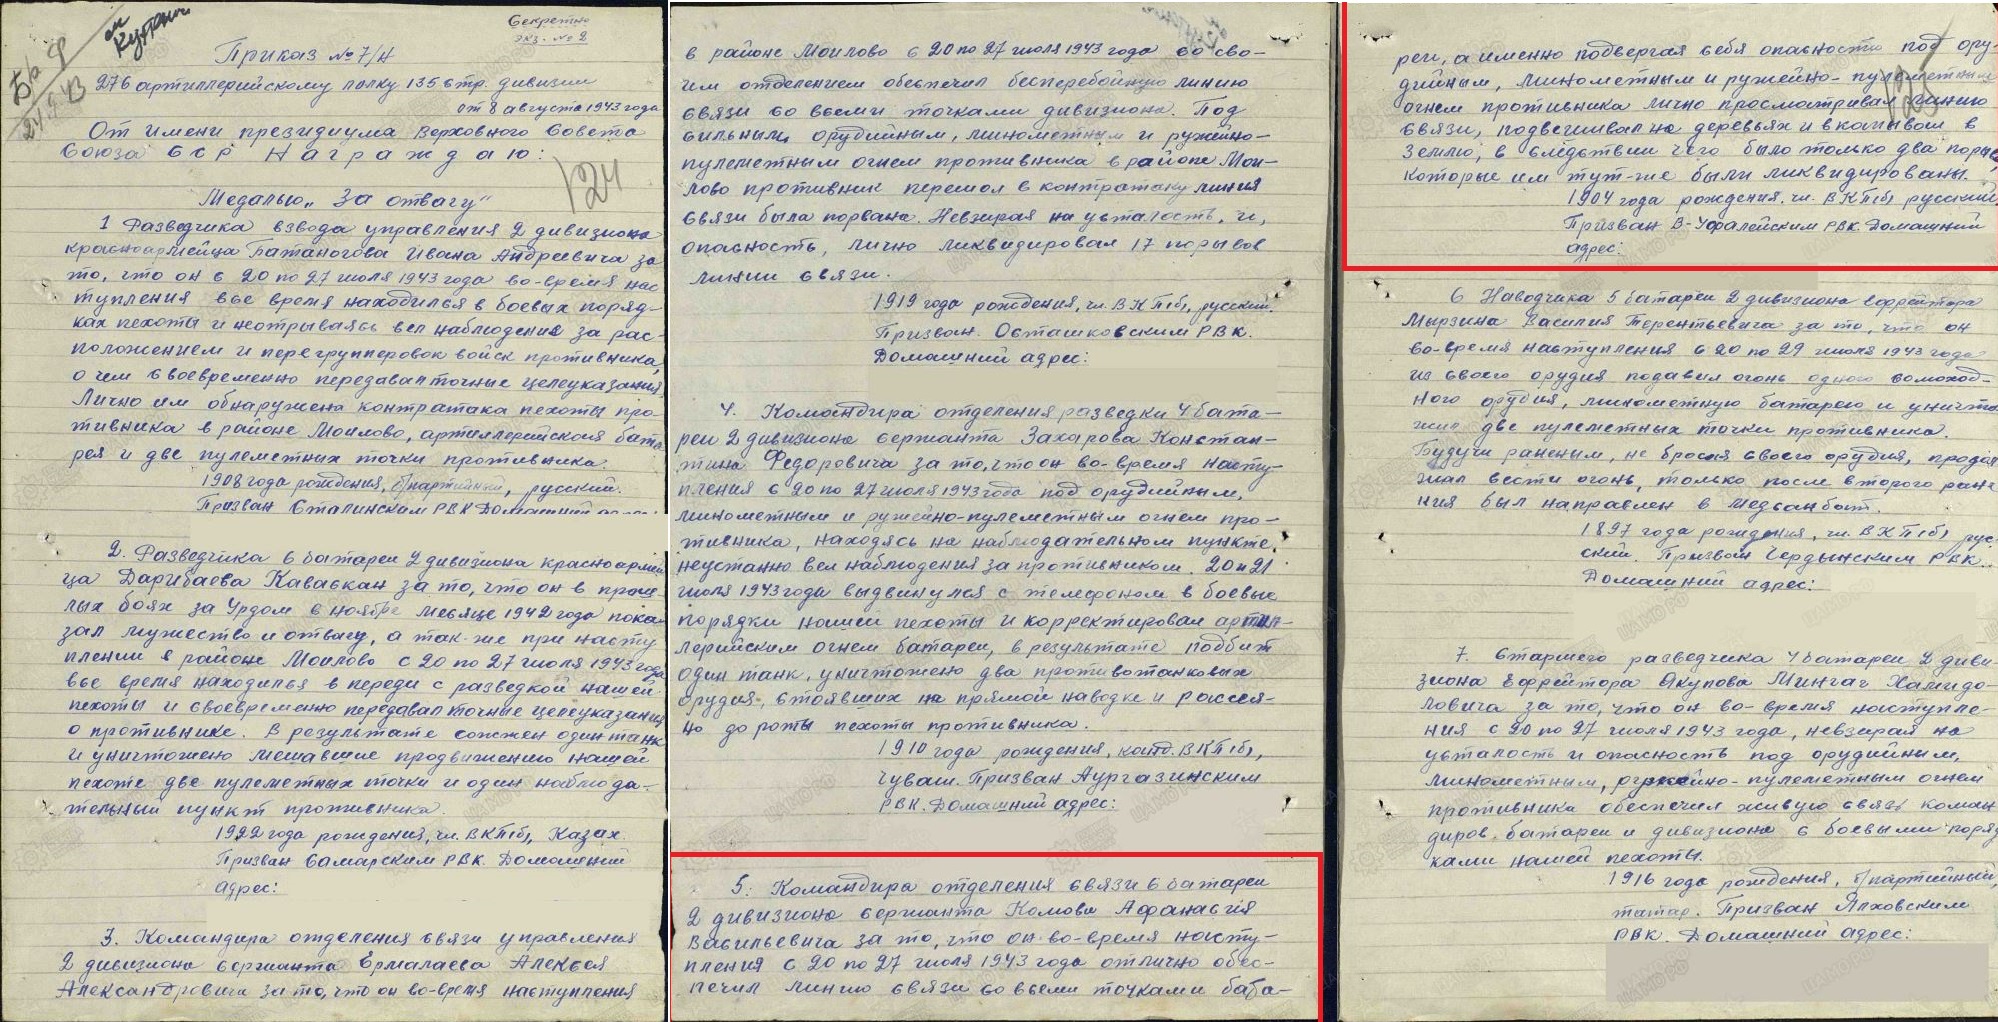 Секретно
экз. № 2
Приказ № 7/Н
276 артиллерийскому полку 135 стр. дивизии
от 8 августа 1943 года
От имени президиума Верховного Совета
Союза ССР Награждаю:
124
Медалью „За отвагу"
1 Разведчика взвода управления 2 дивизиона
красноармейца Батаногова Ивана Андреевича за
то, что он с 20 по 27 июля 1943 года во-время нас
тупления все время находился в боевых поряд-
ках пехоты и неотрываясь вел наблюдения за рас-
положением и перегрупперовок войск противника,
о чем своевременно передавал точные целеуказания.
Лично им обнаружена контратака пехоты про-
тивника в районе Моилово, артиллерийская бата
рея и две пулеметных точки противника.
1908 года рождения, б/партийный, русский.
Призван Сталинским РВК Домашний адрес:
2. Разведчика 6 батареи 2 дивизиона красноармей
ца Дарибаева Кавасхан за то, что он в проше-
лых боях за Урдом в ноябре месяце 1942 года пока
зал мужество и отвагу, а так-же при насту
плении в районе Моилово с 20 по 27 июля 1943 года
все время находился в переди с разведкой нашей
пехоты и своевременно передавал точные целеуказания
о противнике. В результате сожжен один танк
и уничтожено мешавшие продвижению нашей
пехоте две пулеметных точки и один наблюда-
тельный пункт противника.
1922 года рождения, чл. ВКП(б), Казах.
Призван Самарским РВК. Домашений
адрес:
3. Командира отделения связи управления
2 дивизиона сержанта Ермалаева Алексея
Александровича за то, что он во-время наступления
в районе Моилово с 20 по 27 июля 1943 года со сво-
им отделением обеспечил бесперебойную линию
связи со всеми точками дивизиона. Под
сильным, орудийным, минометным и ружейно-
пулеметным огнем противника в районе Мои-
лово противник перешол в контратаку линия
связи была порвана. Невзирая на усталость, и,
опасность, лично ликвидировал 17 порывов
линии связи.
1919 года рождения, чл. ВКП(б), русский.
Призван. Осташковским РВК.
Домашний адрес:
4. Командира отделения разведки 4 бата-
реи 2 дивизиона сержанта Захарова Констан-
тина Федоровича за то, что он во-время насту-
пления с 20 по 27 июля 1943 года под орудийным,
минометным и ружейно-пулеметным огнем про-
тивника, находясь на наблюдательном пункте,
неустанно вел наблюдения за противником. 20 и 21
июля 1943 года выдвинулся с телефоном в боевые
порядки нашей пехоты и корректировал артил-
лерийским огнем батареи, в результате подбит
один танк, уничтожено два противотанковых
орудия, стоявших на прямой наводке и рассея-
но до роты пехоты противника.
1910 года рождения, канд. ВКП(б),
чуваш. Призван Аургазинским
РВК. Домашний адрес:
5. Командира отделения связи 6 батареи
2 дивизиона сержанта Комова Афанасия
Васильевича за то, что он во-время насту-
пления с 20 по 27 июля 1943 года отлично обес-
печил линию связи со всеми точками бата-
реи, а именно подвергая себя опасности под ору-
дийным, минометным и ружейно-пулеметным
огнем противника лично просматривал линию
связи, подвешивал на деревья и вкапывал в
землю, в следствии чего было только два порыва,
которые им тут-же были ликвидированы.
1904 года рождения, чл. ВКП(б), русский.
Призван В-Уфалейским РВК. Домашний
адрес:
6 Наводчика 5 батареи 2 дивизиона ефрейтора
Мырзина Василия Терентьевича за то, что он
во-время наступления с 20 по 29 июля 1943 года
из своего орудия подавил огонь одного самоход-
ного орудия, минометную батарею и уничто
жил две пулеметных точки противника.
Будучи раненым, не бросил своего орудия, продол
жал вести огонь, только после второго ране
ния был направлен в медсанбат.
1897 года рождения, чл. ВКП(б) рус-
ский. Призван Чердынским РВК.
Домашний адрес:
7. Старшего разведчика 4 батареи 2 диви-
зиона ефрейтора Якупова Мингач Хамидо-
ловича за то, что он во-время наступле-
ния с 20 по 27 июля 1943 года, невзирая на
усталость и опасность под орудийным,
минометным, ружейно-пулеметным огнем
противника обеспечил живую связь коман
диров, батареи и дивизиона с боевыми поряд
ками нашей пехоты.
1916 года рождения, б/партийный,
татар. Призван Ялховским
РВК. Домашний адрес: